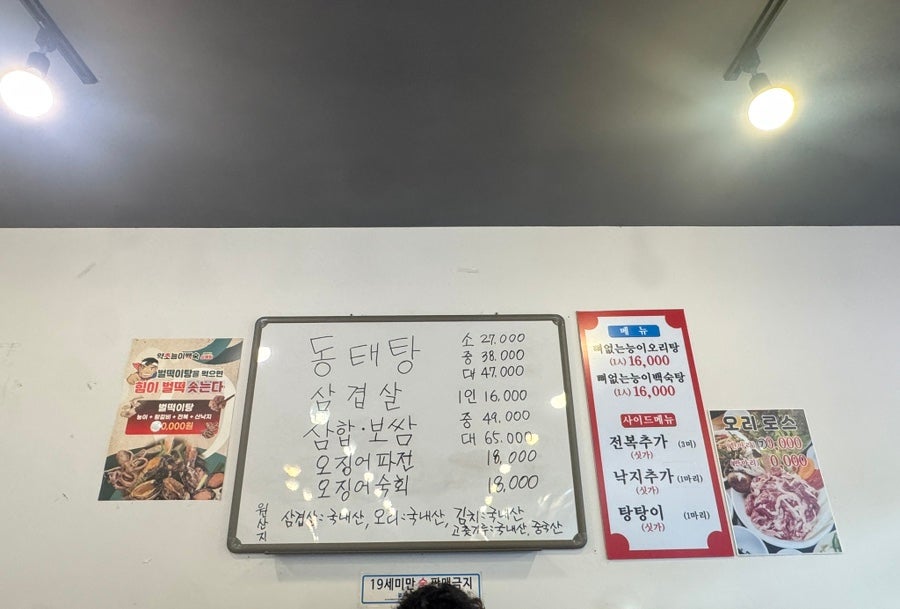 약초능이백숙
벌떡이탕을 먹으면
힘이 벌떡 솟는다
벌떡이탕
능이 + 왕갈비 + 전복 + 산낙지
0,000원
동태탕 소 27,000
중 38,000
대 47,000
삼겹살 1인 16,000
삼합·보쌈 중 49,000
대 65,000
오징어파전 18,000
오징어숙회 18,000
원산지 삼겹살:국내산, 오리:국내산, 김치:국내산
고춧가루:국내산, 중국산
메뉴
뼈없는능이오리탕
(1人) 16,000
뼈없는능이백숙탕
(1人) 16,000
사이드메뉴
전복추가 (3미)
(싯가)
낙지추가 (1마리)
(싯가)
탕탕이 (1마리)
(싯가)
오리 로스
0,000
19세미만 술 판매금지